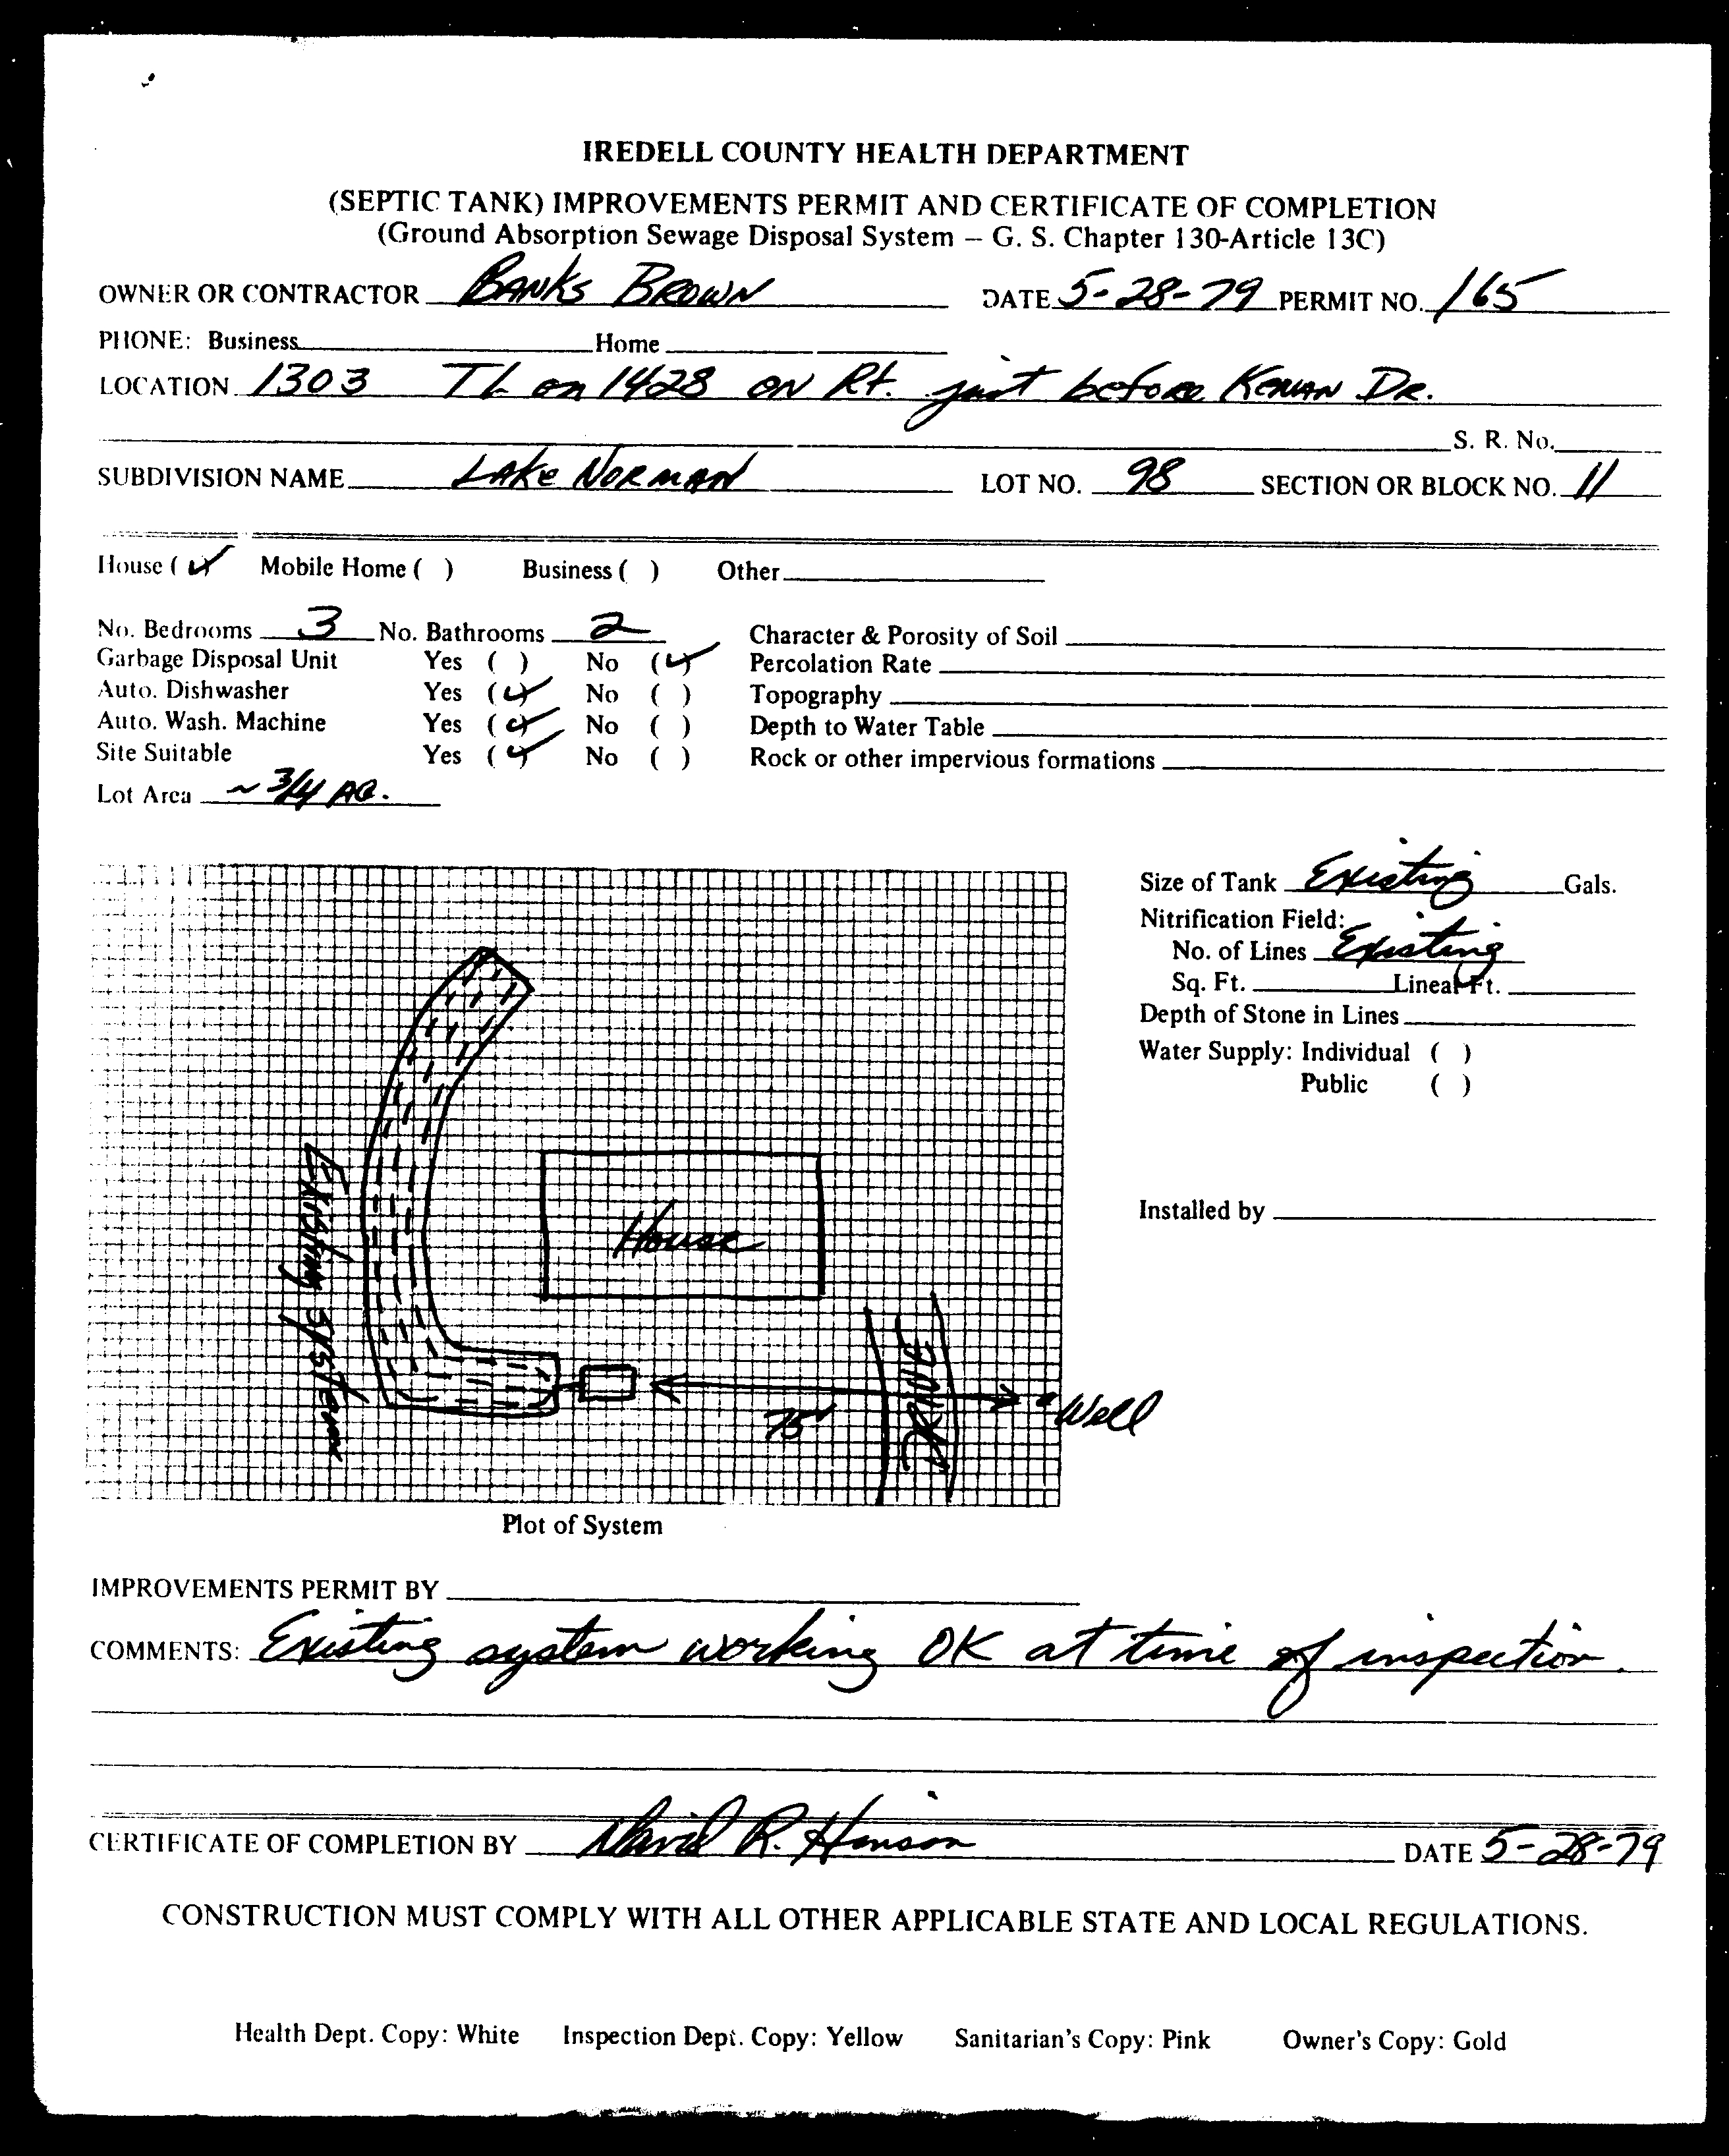 IREDELL COUNTY HEALTH DEPARTMENT
(SEPTIC TANK) IMPROVEMENTS PERMIT AND CERTIFICATE OF COMPLETION
(Ground Absorption Sewage Disposal System – G. S. Chapter 130-Article 13C)
OWNER OR CONTRACTOR BANKS BROWN DATE 5-28-79 PERMIT NO. 165
PHONE: Business Home
LOCATION 1303 TL on 1428 ON Rt. just before KENAN DR.
S. R. No.
SUBDIVISION NAME LAKE NORMAN LOT NO. 98 SECTION OR BLOCK NO. 11
House (✓) Mobile Home ( ) Business ( ) Other
No. Bedrooms 3 No. Bathrooms 2 Character & Porosity of Soil
Garbage Disposal Unit Yes ( ) No (✓) Percolation Rate
Auto. Dishwasher Yes (✓) No ( ) Topography
Auto. Wash. Machine Yes (✓) No ( ) Depth to Water Table
Site Suitable Yes (✓) No ( ) Rock or other impervious formations
Lot Area ~ 3/4 AC.
Size of Tank Existing Gals.
Nitrification Field:
No. of Lines Existing
Sq. Ft. Lineal Ft.
Depth of Stone in Lines
Water Supply: Individual ( )
Public ( )
Installed by
Existing System
House
DRIVE
75'
Well
Plot of System
IMPROVEMENTS PERMIT BY
COMMENTS: Existing system working OK at time of inspection.
CERTIFICATE OF COMPLETION BY David R. Henson DATE 5-28-79
CONSTRUCTION MUST COMPLY WITH ALL OTHER APPLICABLE STATE AND LOCAL REGULATIONS.
Health Dept. Copy: White Inspection Dept. Copy: Yellow Sanitarian's Copy: Pink Owner's Copy: Gold